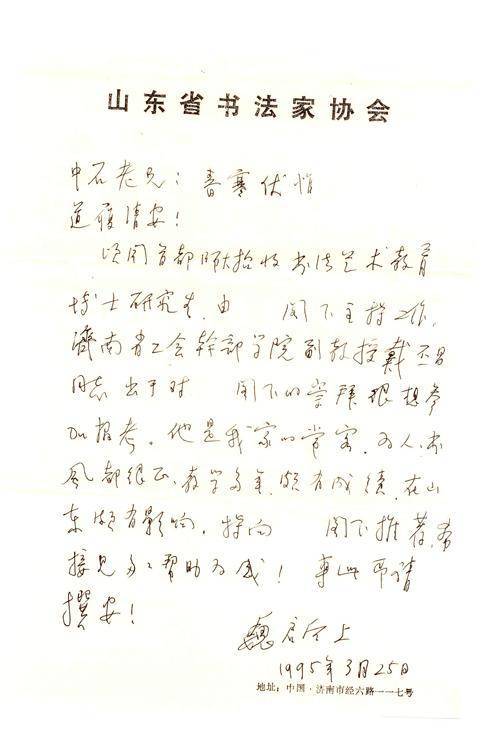 山东省书法家协会
中石老兄：春寒伏惟
道履清安！
顷闻首都师大招收书法艺术教育
博士研究生，由 阁下主持工作，
济南省工会幹部学院副教授戴丕昌
同志出于对 阁下的崇拜，很想参
加报考。他是我家的常客，为人、书
风都很正，教学多年，颇有成绩，在山
东颇有影响，特向 阁下推荐，希
接见多多帮助为感！专此即请
撰安！
魏启后上
1995年3月25日
地址：中国·济南市经六路一一七号